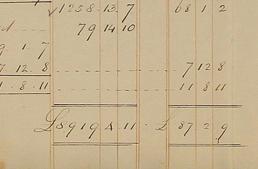 1258 . 13 . 7 68 1 2
79 14 10
9 1 . 7
7 . 12 . 8 7 12 8
1 . 8 . 11 11 8 11
£8919 4 11 £ 87 2 9